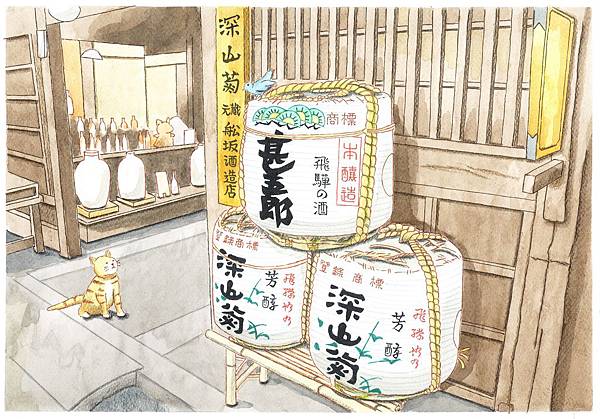 深山菊 元 舩坂酒造店
商標
本醸造
飛騨の酒
甚五郎
登録商標
芳醇
深山菊
登録商標
飛騨
芳醇
深山菊